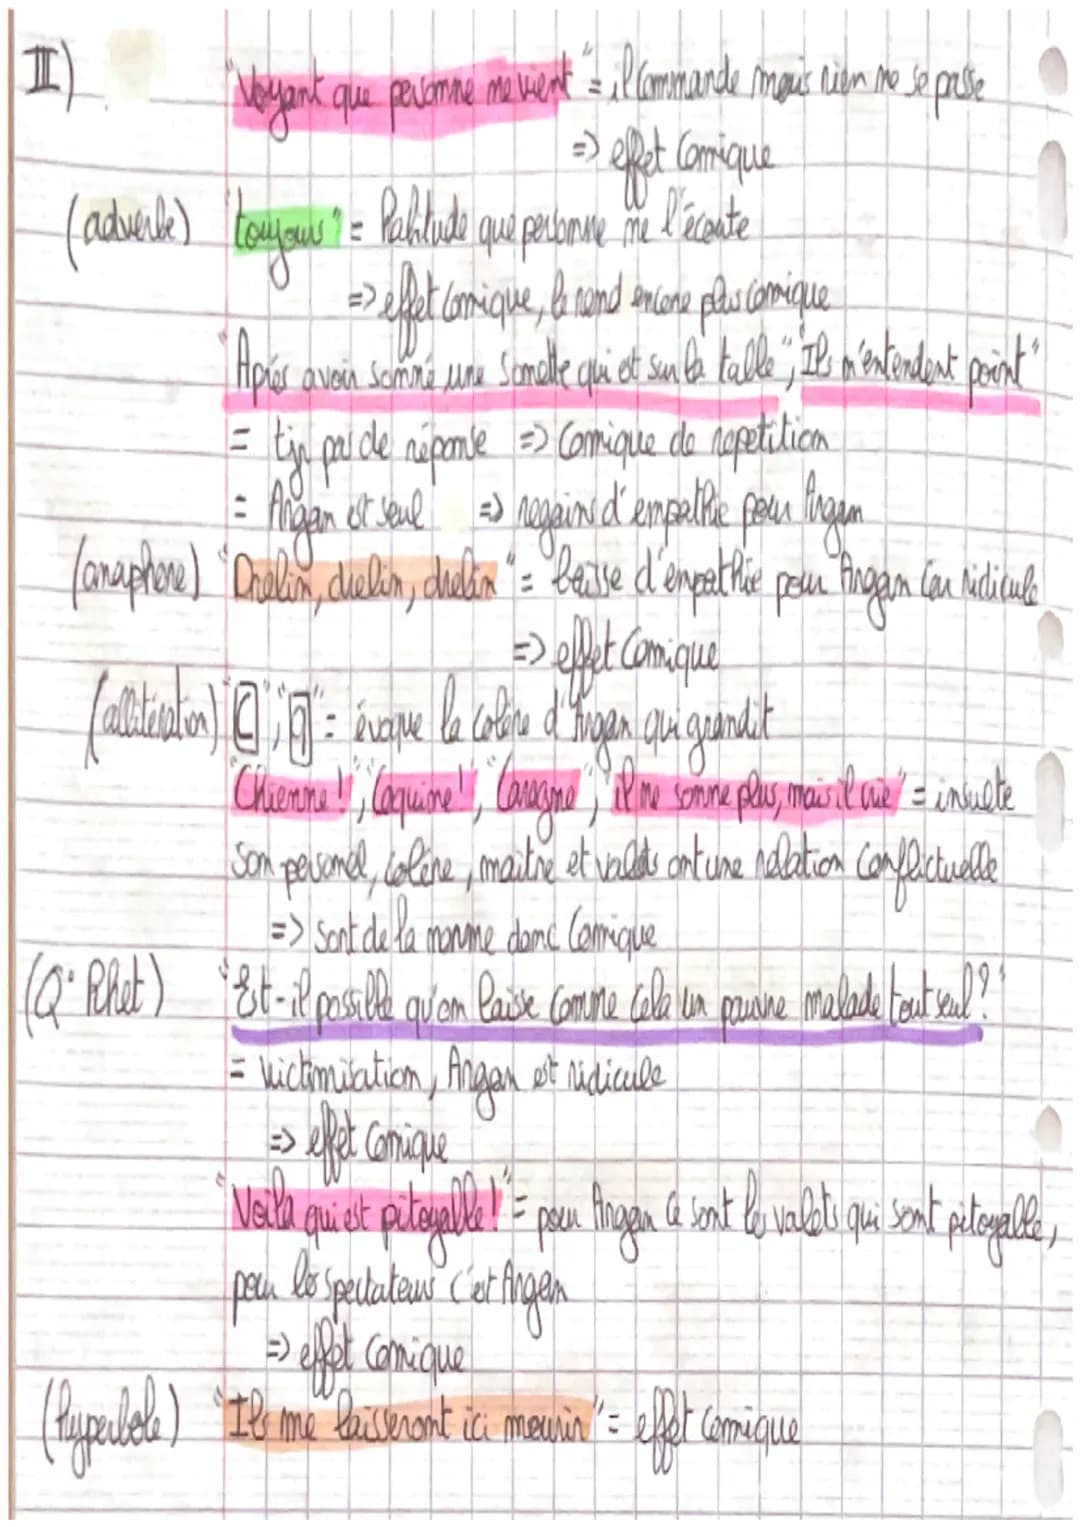 II) "Voyant que personne ne vient" = il commande mais rien ne se passe
=> effet comique
(adverbe) "toujours" = habitude que personne ne l'écoute
=> effet comique, le rend encore plus comique
"Après avoir sonné une sonette qui est sur la table", "Ils n'entendent point"
= tjr pas de réponse => comique de repetition
= Argan est seul => regains d'empathie pour Argan
(anaphore) "Drelin, drelin, drelin" = baisse d'empathie pour Argan car ridicule
=> effet comique
(allitération) "C", "q" = évoque la colère d'Argan qui grandit
"Chienne!", "Coquine!", "Carogne", "il ne sonne plus, mais il crie" = insulte
son personel, colère, maitre et valets ont une relation conflictuelle
=> sort de la norme donc comique
(Q° Rhet) "Est-il possible qu'on laisse comme cela un pauvre malade tout seul?"
= victimisation, Argan est ridicule
=> effet comique
"Voila qui est pitoyable!" = pour Argan ce sont les valets qui sont pitoyable,
pour les spectateurs c'est Argan
=> effet comique
(hyperbole) "Ils me laisseront ici mourir" = effet comique